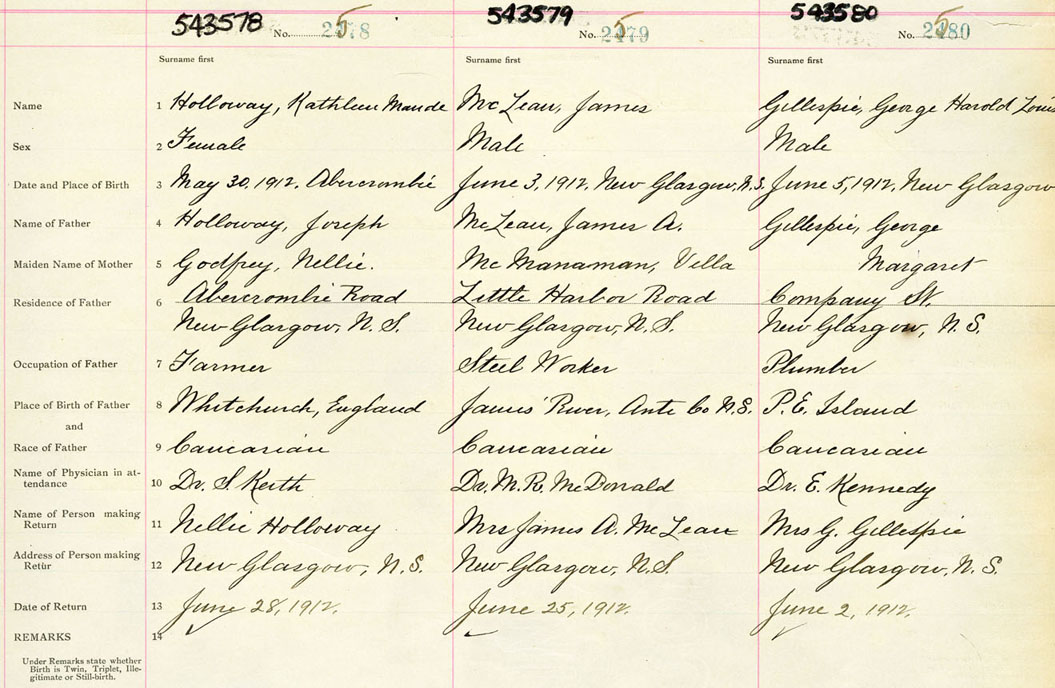 543578 No. 2478
543579 No. 2479
543580 No. 2480
5 5 5
Surname first Surname first Surname first
Name 1 Holloway, Kathleen Maude Mc Lean, James Gillespie, George Harold Louis
Sex 2 Female Male Male
Date and Place of Birth 3 May 30, 1912. Abercrombie June 3, 1912, New Glasgow, N.S. June 5, 1912, New Glasgow
Name of Father 4 Holloway, Joseph McLean, James A. Gillespie, George
Maiden Name of Mother 5 Godfrey, Nellie. Mc Manaman, Villa Margaret
Residence of Father 6 Abercrombie Road Little Harbor Road Company St.
New Glasgow, N.S. New Glasgow, N.S. New Glasgow, N.S.
Occupation of Father 7 Farmer Steel Worker Plumber
Place of Birth of Father 8 Whitchurch, England James' River, Ants Co N.S. P.E. Island
and
Race of Father 9 Caucasian Caucasian Caucasian
Name of Physician in at-
tendance 10 Dr. S. Keith Dr. M.R. McDonald Dr. E. Kennedy
Name of Person making
Return 11 Nellie Holloway Mrs James A. McLean Mrs G. Gillespie
Address of Person making
Retur 12 New Glasgow, N.S. New Glasgow, N.S. New Glasgow, N.S.
Date of Return 13 June 28, 1912. June 25, 1912. June 2, 1912.
REMARKS 14
Under Remarks state whether
Birth is Twin, Triplet, Ille-
gitimate or Still-birth.